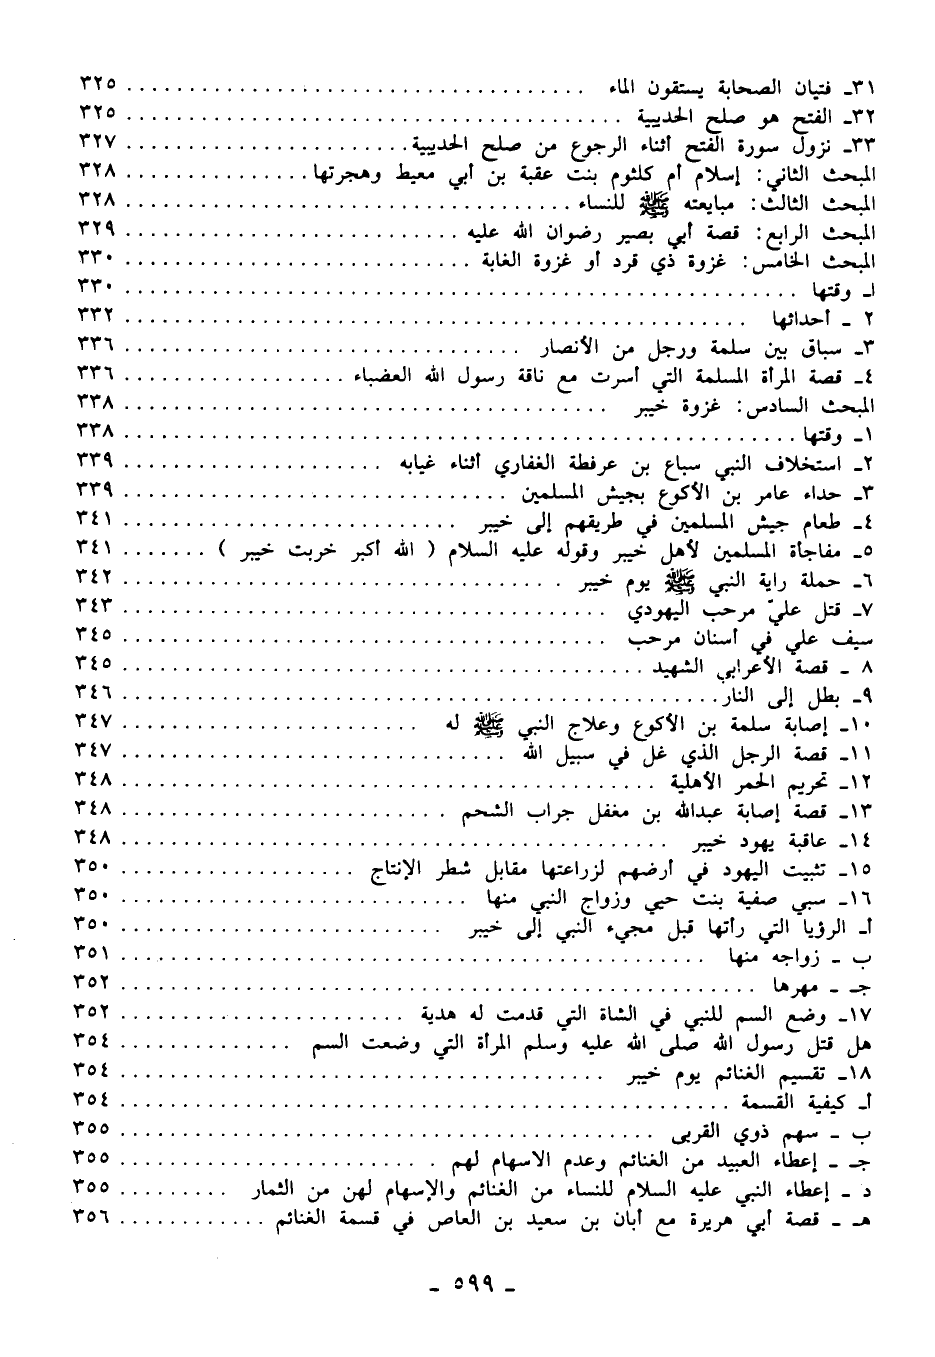 ٣١ـ فتيان الصحابة يستقون الماء ..................................... ٣٢٥
٣٢ـ الفتح هو صلح الحديبية ........................................ ٣٢٥
٣٣ـ نزول سورة الفتح أثناء الرجوع من صلح الحديبية....................... ٣٢٧
المبحث الثاني: إسلام أم كلثوم بنت عقبة بن أبي معيط وهجرتها............... ٣٢٨
المبحث الثالث: مبايعته ﷺ للنساء.................................... ٣٢٨
المبحث الرابع: قصة أبي بصير رضوان الله عليه ........................... ٣٢٩
المبحث الخامس: غزوة ذي قرد أو غزوة الغابة ............................ ٣٣٠
١ـ وقتها ...................................................... ٣٣٠
٢ ـ أحداثها .................................................. ٣٣٢
٣ـ سباق بين سلمة ورجل من الأنصار ................................ ٣٣٦
٤ـ قصة المرأة المسلمة التي أسرت مع ناقة رسول الله العضباء .................. ٣٣٦
المبحث السادس: غزوة خيبر ....................................... ٣٣٨
١ـ وقتها...................................................... ٣٣٨
٢ـ استخلاف النبي سباع بن عرفطة الغفاري أثناء غيابه ..................... ٣٣٩
٣ـ حداء عامر بن الأكوع بجيش المسلمين ............................... ٣٣٩
٤ـ طعام جيش المسلمين في طريقهم إلى خيبر ........................... ٣٤١
٥ـ مفاجأة المسلمين لأهل خيبر وقوله عليه السلام ( الله أكبر خربت خيبر ) ....... ٣٤١
٦ـ حملة راية النبي ﷺ يوم خيبر .................................... ٣٤٢
٧ـ قتل عليّ مرحب اليهودي ....................................... ٣٤٣
سيف علي في أسنان مرحب ....................................... ٣٤٥
٨ ـ قصة الأعرابي الشهيد.......................................... ٣٤٥
٩ـ بطل إلى النار................................................ ٣٤٦
١٠ـ إصابة سلمة بن الأكوع وعلاج النبي ﷺ له ........................ ٣٤٧
١١ـ قصة الرجل الذي غل في سبيل الله ............................... ٣٤٧
١٢ـ تحريم الحمر الأهلية ........................................... ٣٤٨
١٣ـ قصة إصابة عبدالله بن مغفل جراب الشحم .......................... ٣٤٨
١٤ـ عاقبة يهود خيبر ............................................ ٣٤٨
١٥ـ تثبيت اليهود في أرضهم لزراعتها مقابل شطر الإنتاج ................... ٣٥٠
١٦ـ سبي صفية بنت حيي وزواج النبي منها ............................ ٣٥٠
أـ الرؤيا التي رأتها قبل مجيء النبي إلى خيبر .......................... ٣٥٠
ب ـ زواجه منها ............................................... ٣٥١
جـ ـ مهرها ................................................... ٣٥٢
١٧ـ وضع السم للنبي في الشاة التي قدمت له هدية ....................... ٣٥٢
هل قتل رسول الله صلى الله عليه وسلم المرأة التي وضعت السم .............. ٣٥٤
١٨ـ تقسيم الغنائم يوم خيبر ....................................... ٣٥٤
أـ كيفية القسمة ................................................. ٣٥٤
ب ـ سهم ذوي القربى ........................................... ٣٥٥
جـ ـ إعطاء العبيد من الغنائم وعدم الاسهام لهم .......................... ٣٥٥
د ـ إعطاء النبي عليه السلام للنساء من الغنائم والإسهام لهن من الثمار ......... ٣٥٥
هـ ـ قصة أبي هريرة مع أبان بن سعيد بن العاص في قسمة الغنائم ............ ٣٥٦
ـ ٥٩٩ ـ